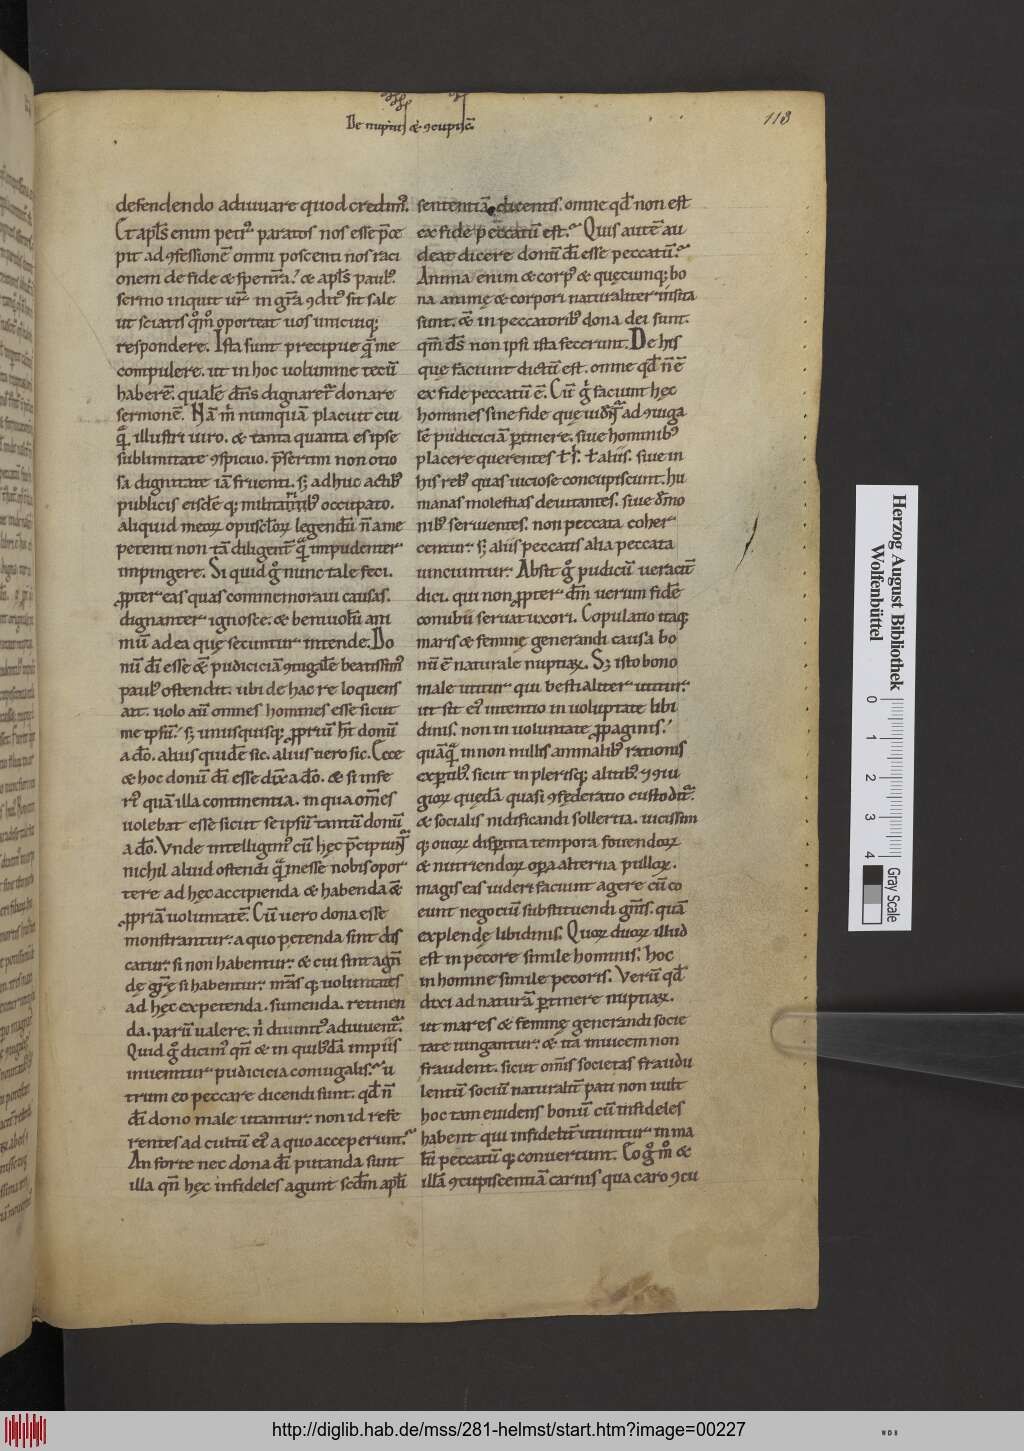 De nuptiis & ꝯcupisc̄.
113
defendendo adiuuare quod credim᷒.
Et apl̄s enim petr᷒ paratos nos esse p̄ce
pit ad ꝯfessionē omni poscenti nos raci
onem de fide & spe nr̄a. & apl̄s paul᷒.
sermo inquit ur̄ in gr̄a ꝯdit᷒ sit sale
ut sciatis qͦmͦ oporteat uos unicuiq;
respondere. Ista sunt precipue quę me
compulere. ut in hoc uolumine tecū
haberē. qualē dn̄s dignaret᷑ donare
sermonē. Nā mͥ numquā placuit cui
qͣ illustri uiro. & tanta quanta es ipse
sublimitate ꝯspicuo. p̄sertim non otio
sa dignitate iā fruenti. s; adhuc actib᷒
publicis eisdē q; militarib᷒ occupato.
aliquid meoꝝ opuscl̄oꝝ legendū n̄ a me
petenti non tā diligent᷑ qͣ impudenter
impingere. Si quid gͦ nunc tale feci.
ꝓpter eas quas commemoraui causas.
dignanter ignosce. & beniuolū ani
mū ad ea quę secuntur intende. Do
nū dī esse & pudiciciā ꝯiugalē beatissim᷒
paul᷒ ostendit. ubi de hac re loquens
ait. uolo aū omnes homines esse sicut
me ipsū. s; unusquisq; ꝓpriū ht̄ donū
a dō. alius quidē sic. alius uero sic. Ecce
& hoc donū dī esse dix̄ a dō. & si infe
ri᷒ quā illa continentia. in qua om̄es
uolebat esse sicut se ipsū. tantū donū
a dō. Vnde intelligim᷒ cū hęc p̄cipiunt᷑
nichil aliud ostendi qͣ inesse nobis opor
tere ad hęc accipienda & habenda &
ꝓpriā uoluntatē. Cū uero dona esse
monstrantur. a quo petenda sint dis
catur. si non habentur. & cui sint agn̄
dę grę̄ si habentur. nr̄as q; uoluntates
ad hęc expetenda. sumenda. retinen
da. parū ualere. nͥ diuinit᷒ adiuuent᷑.
Quid gͦ dicim᷒ qn̄ & in quib᷒dā impiis
inuenitur pudicicia coniugalis. u
trum eo peccare dicendi sunt. qd̄ n̄
dī dono male utantur. non id refe
rentes ad cultū ei᷒ a quo acceperunt.
An forte nec dona dī putanda sunt
illa qn̄ hęc infideles agunt scdm̄ apli
sententiā dicentis. omne qd̄ non est
ex fide peccatū est. Quis autē au
deat dicere donū dī esse peccatū.
Anima enim & corp᷒ & quęcunq; bo
na animę & corpori naturaliter insita
sunt. & in peccatorib᷒ dona dei sunt.
qm̄ ds̄ non ipsi ista fecerunt. De his
quę faciunt dictū est. omne qd̄ n̄ ē
ex fide peccatū ē. Cū gͦ faciunt hęc
homines sine fide quę uident᷑ ad ꝯiuga
lē pudiciciā ꝑtinere. siue hominib᷒
placere querentes ł sͥ. ł aliis. siue in
his reb᷒ quas uiciose concupiscunt. hu
manas molestias deuitantes. siue demo
nib᷒ seruientes. non peccata coher
centur. s; aliis peccatis alia peccata
uincuntur. Absit gͦ pudicū ueraciť
dici. qui non ꝓpter dm̄ uerum fidē
conubii seruat uxori. Copulatio itaq;
maris & feminę generandi causa bo
nū ē naturale nuptiaꝝ. S; isto bono
male utitur qui bestialiter utitur.
ut sit ei᷒ intentio in uoluptate libi
dinis. non in uoluntate ꝓpaginis.
quāqͣ in non nullis animalib᷒ rationis
expertib᷒. sicut in plerisq; alitib᷒. & ꝯiu
gioꝝ quedā quasi ꝯfęderatio custodit᷑.
& socialis nidificandi sollertia. uicissim
q; ouoꝝ disꝑtita tempora fouendoꝝ
& nutriendoꝝ oꝑa alterna pulloꝝ.
magis eas uideri faciunt agere cū co
eunt negociū substituendi gn̄is. quā
explendę libidinis. Quoꝝ duoꝝ illud
est in pecore simile hominis. hoc
in homine simile pecoris. Verū qd̄
dixi ad naturā ꝑtinere nuptiaꝝ.
ut mares & feminę generandi socie
tate iungantur. & ita inuicem non
fraudent. sicut om̄is societas fraudu
lentū sociū naturalit᷑ pati non uult
hoc tam euidens bonū cū infideles
habent qui infidelit᷑ utuntur in ma
lū peccatū q; conuertunt. Eo gͦ mͦ &
illā ꝯcupiscentiā carnis qua caro ꝯcu
Herzog August Bibliothek
Wolfenbüttel
0 1 2 3 4
Gray Scale
http://diglib.hab.de/mss/281-helmst/start.htm?image=00227